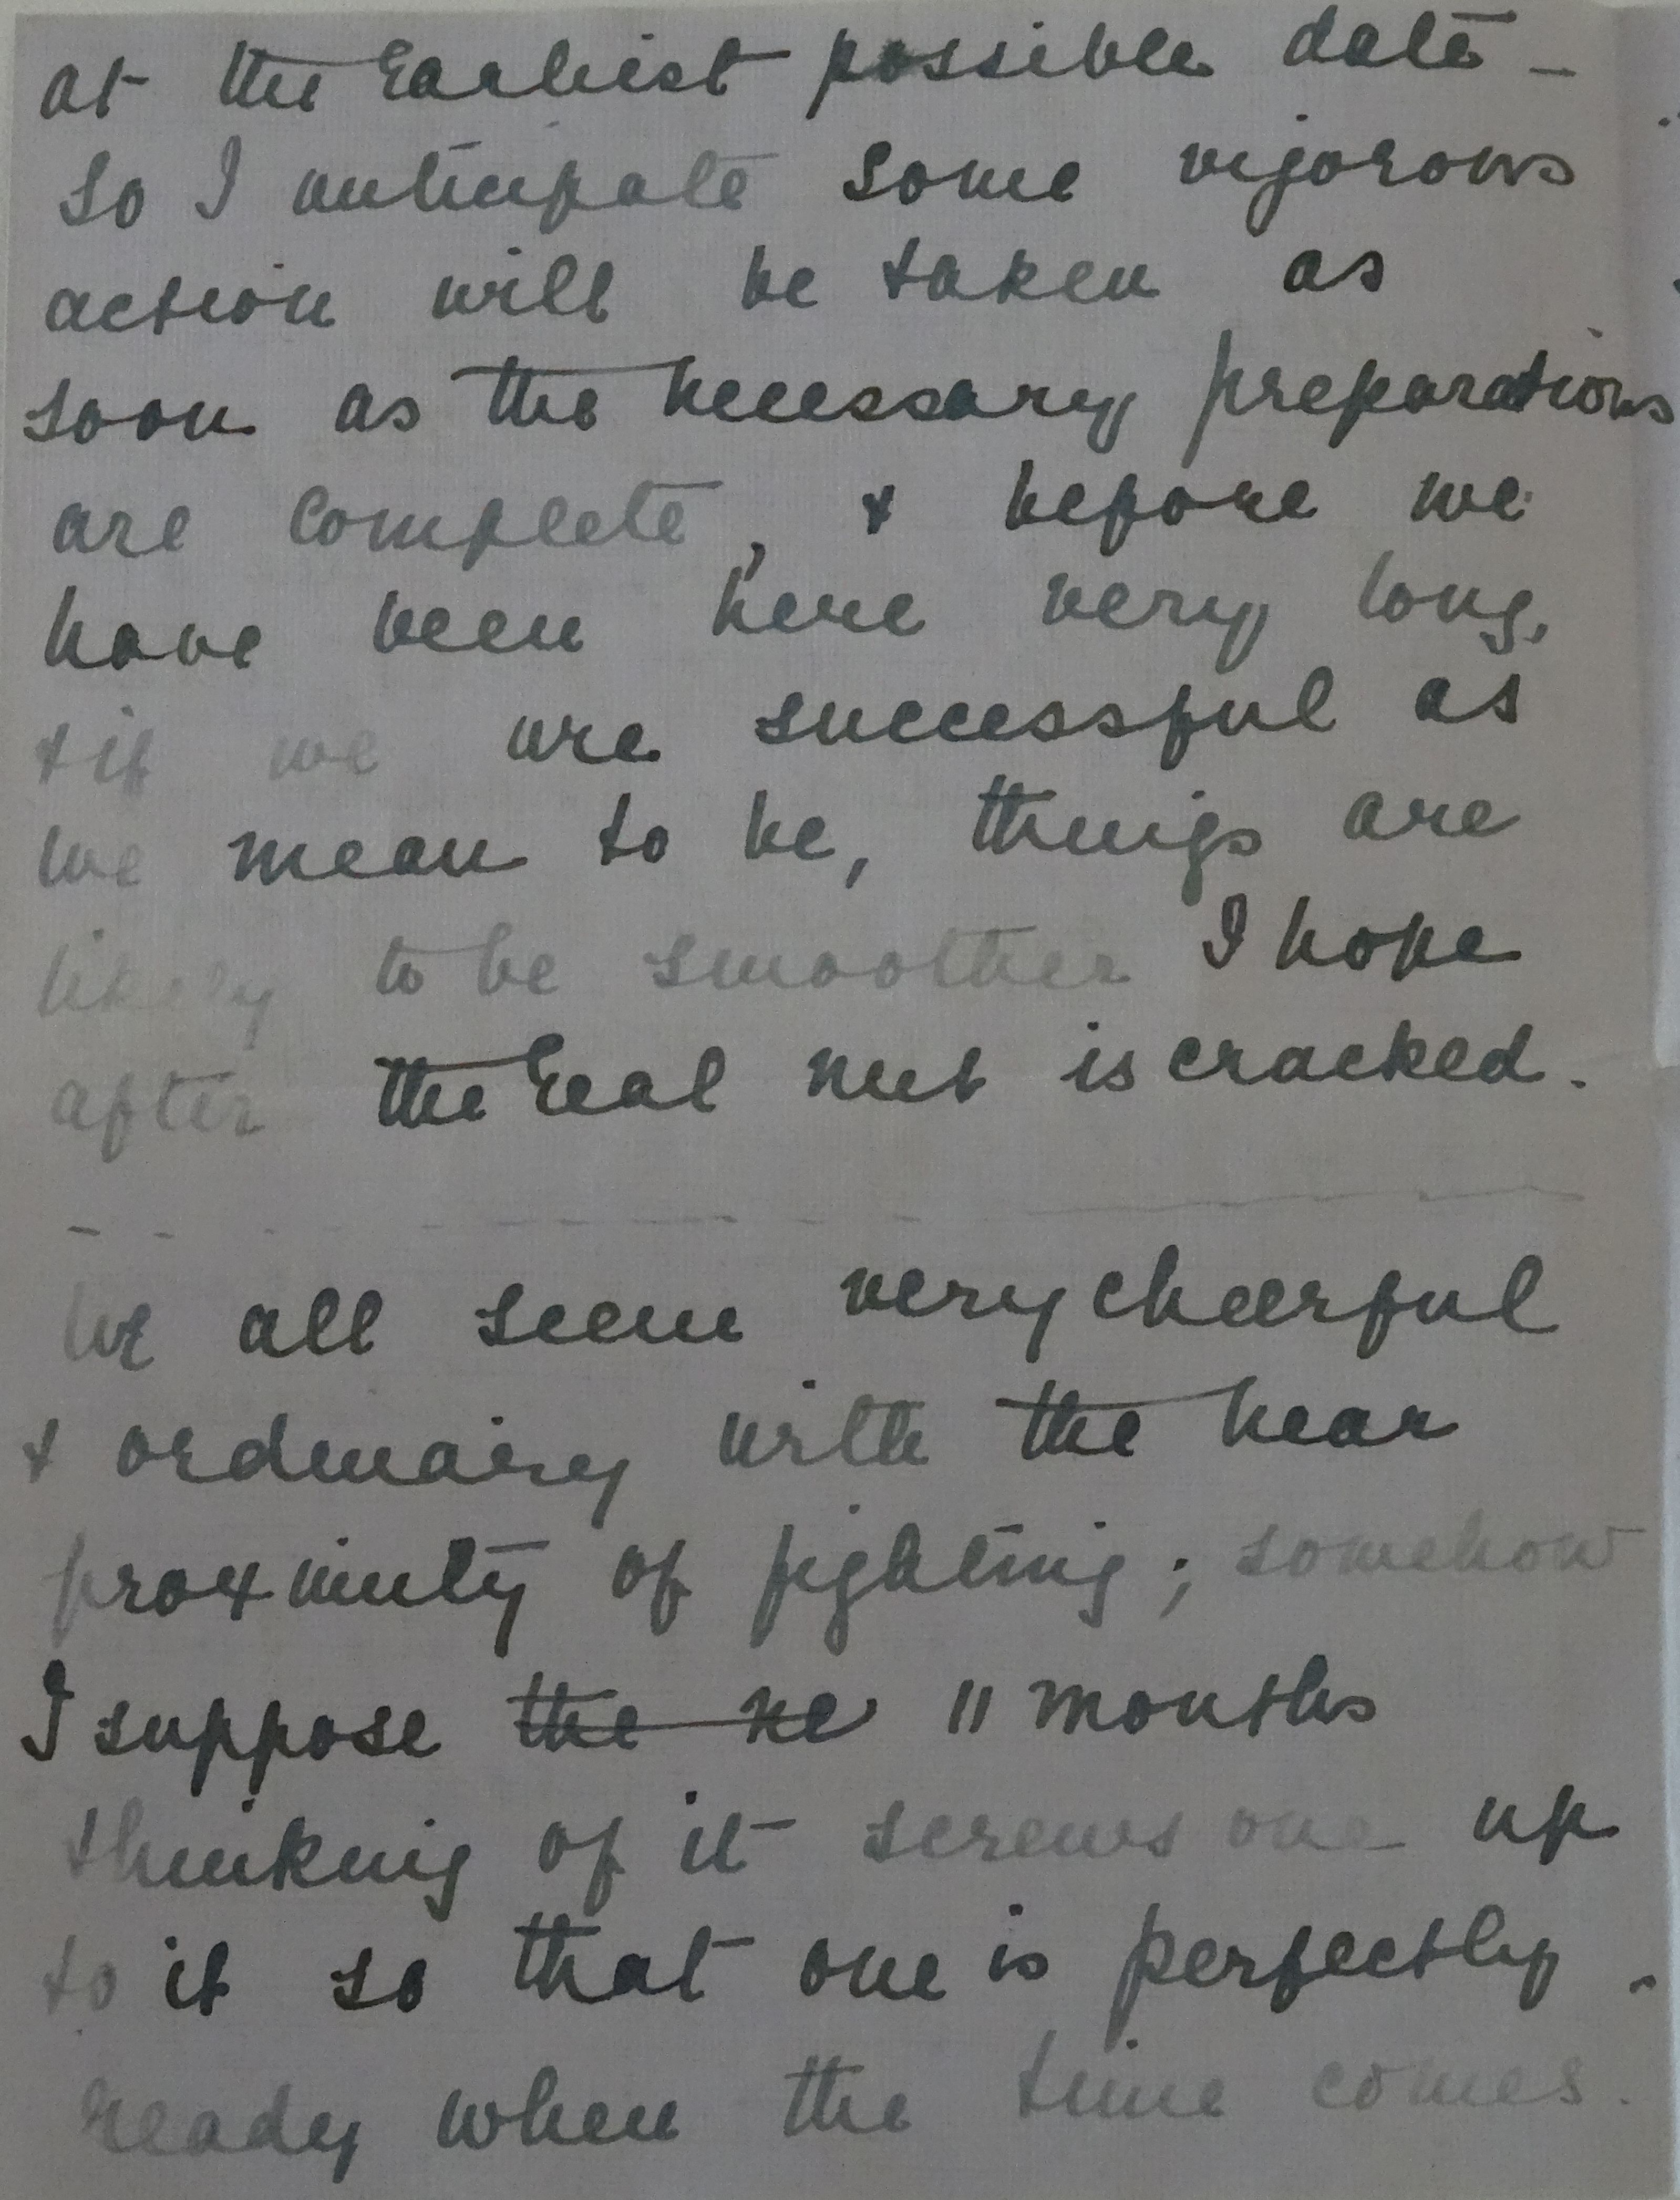 at the Earliest possible date -
So I anticipate some vigorous
action will be taken as
soon as the necessary preparations
are complete, & before we
have been here very long,
& if we are successful as
we mean to be, things are
likely to be smoother I hope
after the real nut is cracked.
We all seem very cheerful
& ordinary with the near
proximity of fighting; somehow
I suppose the ne 11 months
thinking of it screws one up
to it so that one is perfectly
ready when the time comes.